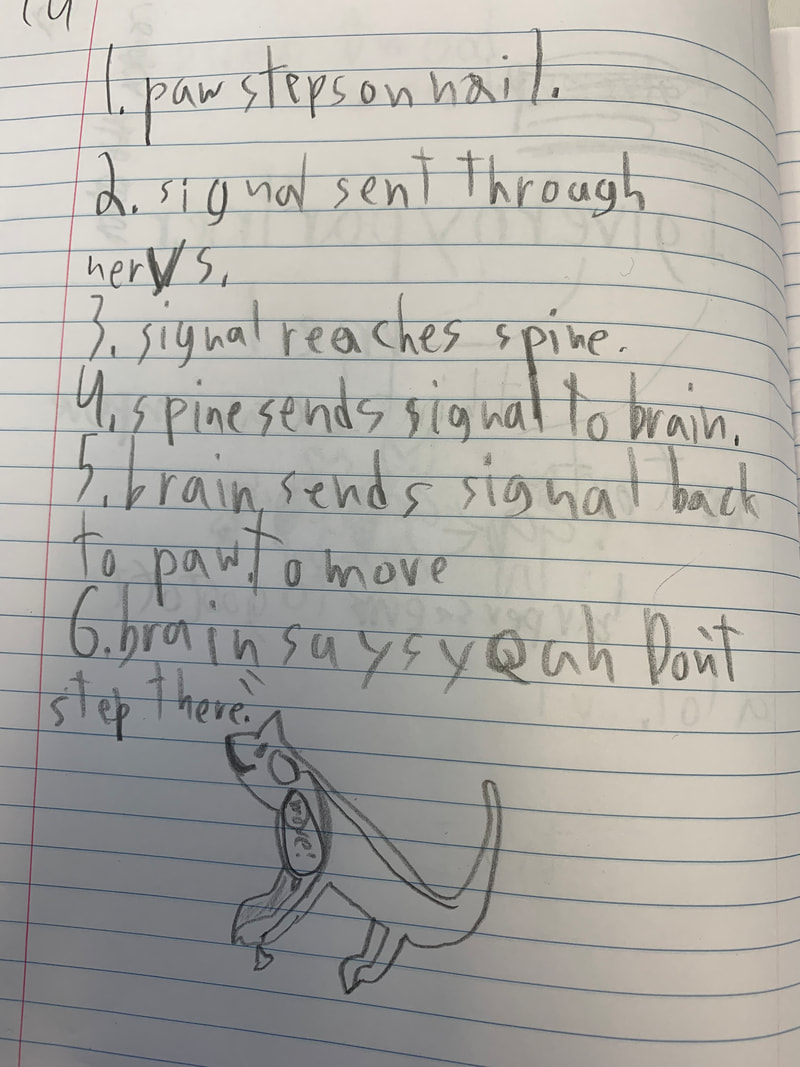 1. paw steps on nail.
2. signal sent through
nervs.
3. signal reaches spine.
4. spine sends signal to brain.
5. brain sends signal back
to paw. to move
6. brain says yeah Don't
step there."
move!